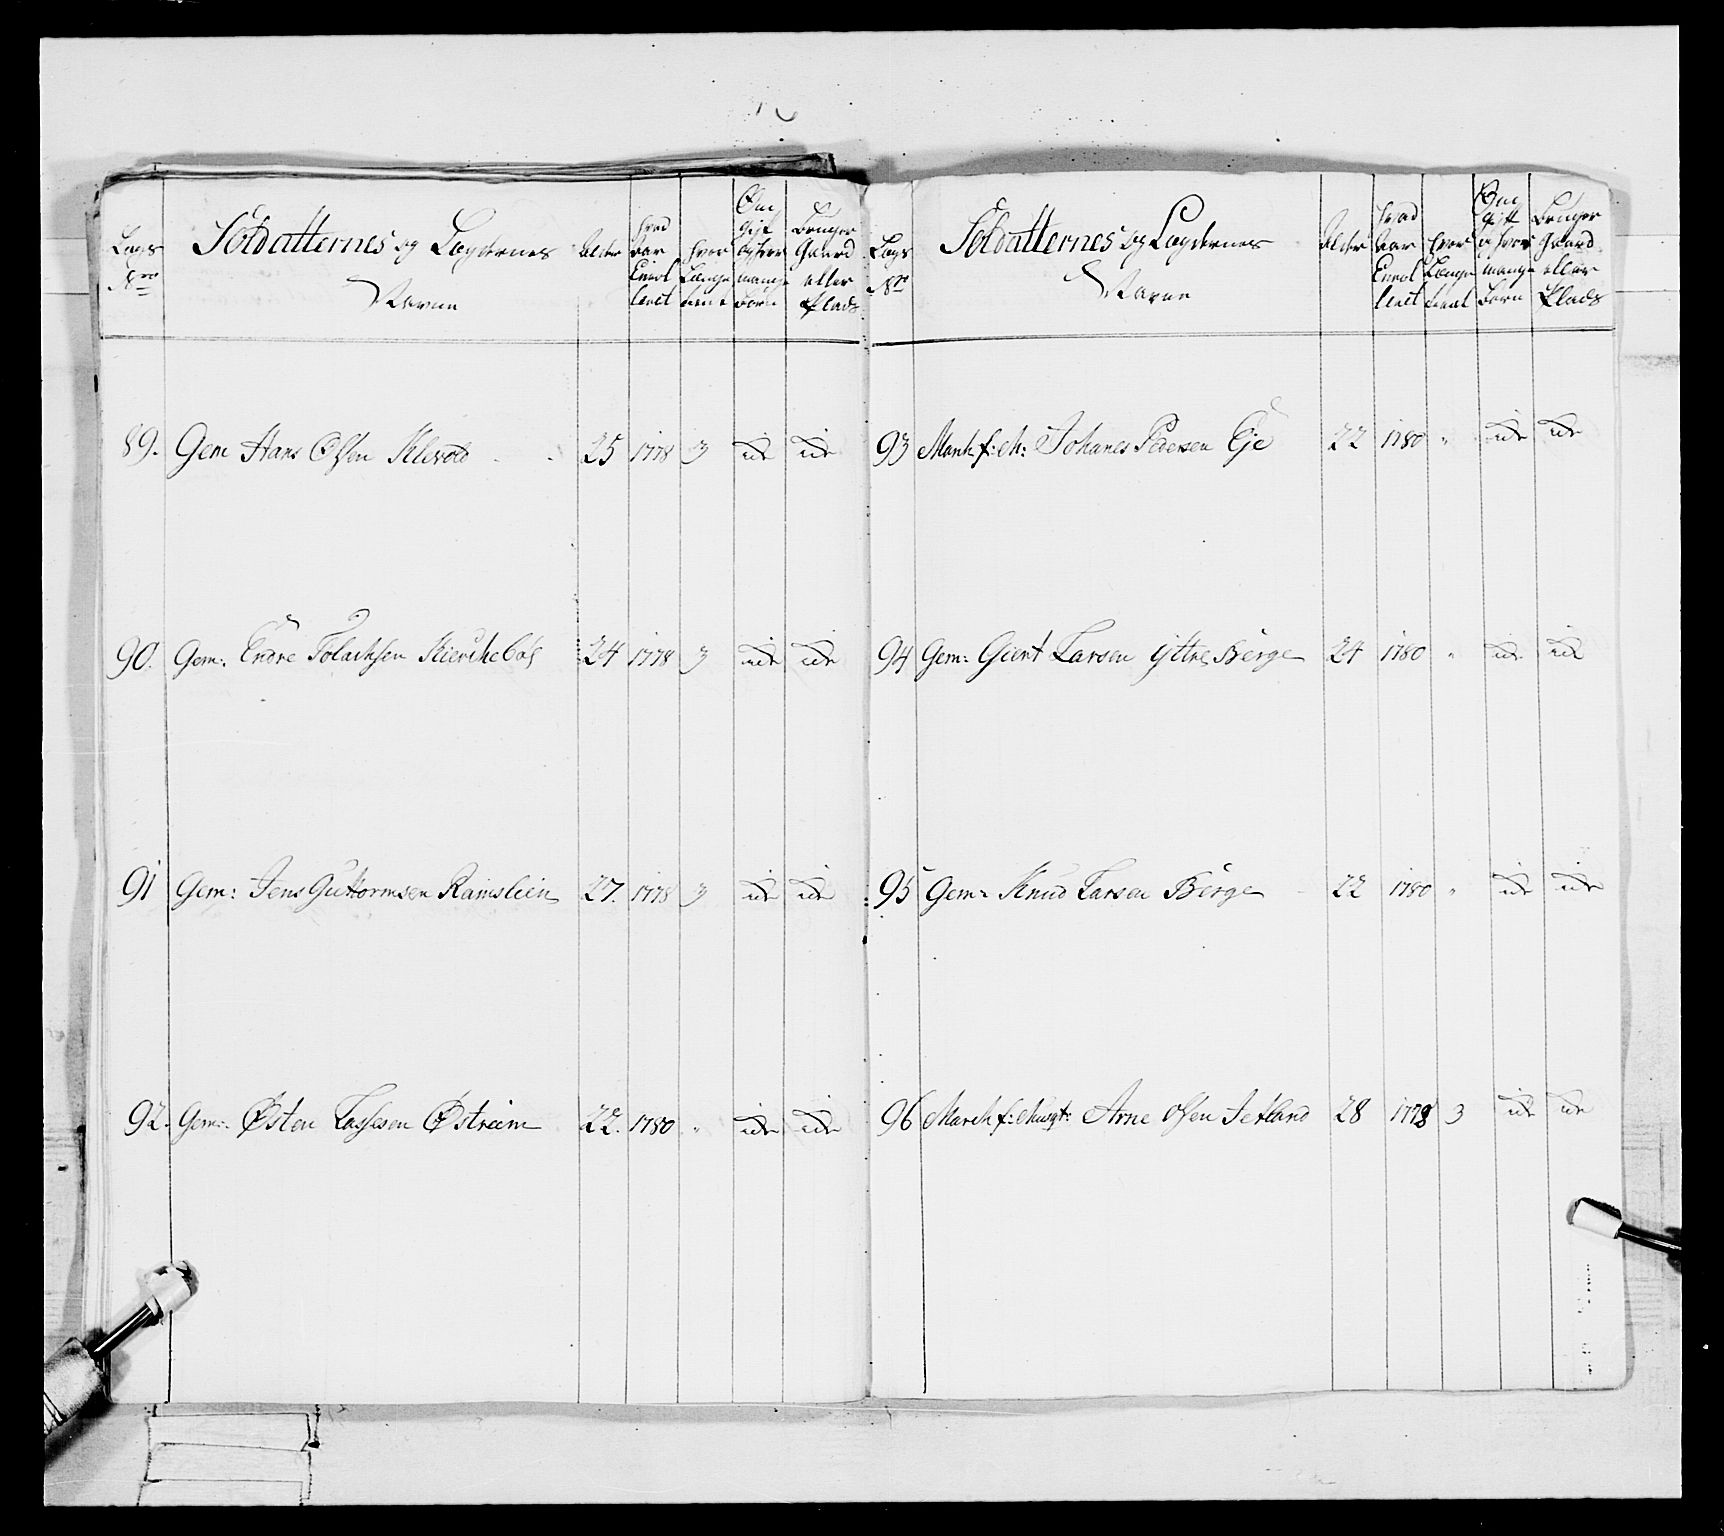 Lægs Nro | Soldatternes og Lægdernes Navne | Alder | hvad Aar Enrolleret | hvor Længe tient | Om Gift og hvor mange Børn | Bruger Gaard eller Plads
89. Gem Hans Olsen Klevold 25 1778 3 ide ide
90. Gem: Endre Tolachsen Kierchebøe 24 1778 3 ide ide
91 Gem: Jens Guttormsen Ramslien 27. 1778 3 ide ide
92. Gem: Østen Lassesen Østreim 22. 1780 " ide ide
Lægs Nro | Soldatternes og Lægdernes Navne | Alder | hvad Aar Enrolleret | hvor Længe tient | Om Gift og hvor mange Børn | Bruger Gaard eller Plads
93 Mank f: M: Johanes Pedersen Eje 22 1780 " ide ide
94 Gem: Giert Larsen Yttre Berge 24 1780 " ide ide
95 Gem: Knud Larsen Berge 22 1780 " ide ide
96 f: Musqt: Arne Olsen Jetland 28 1778 3 ide ide